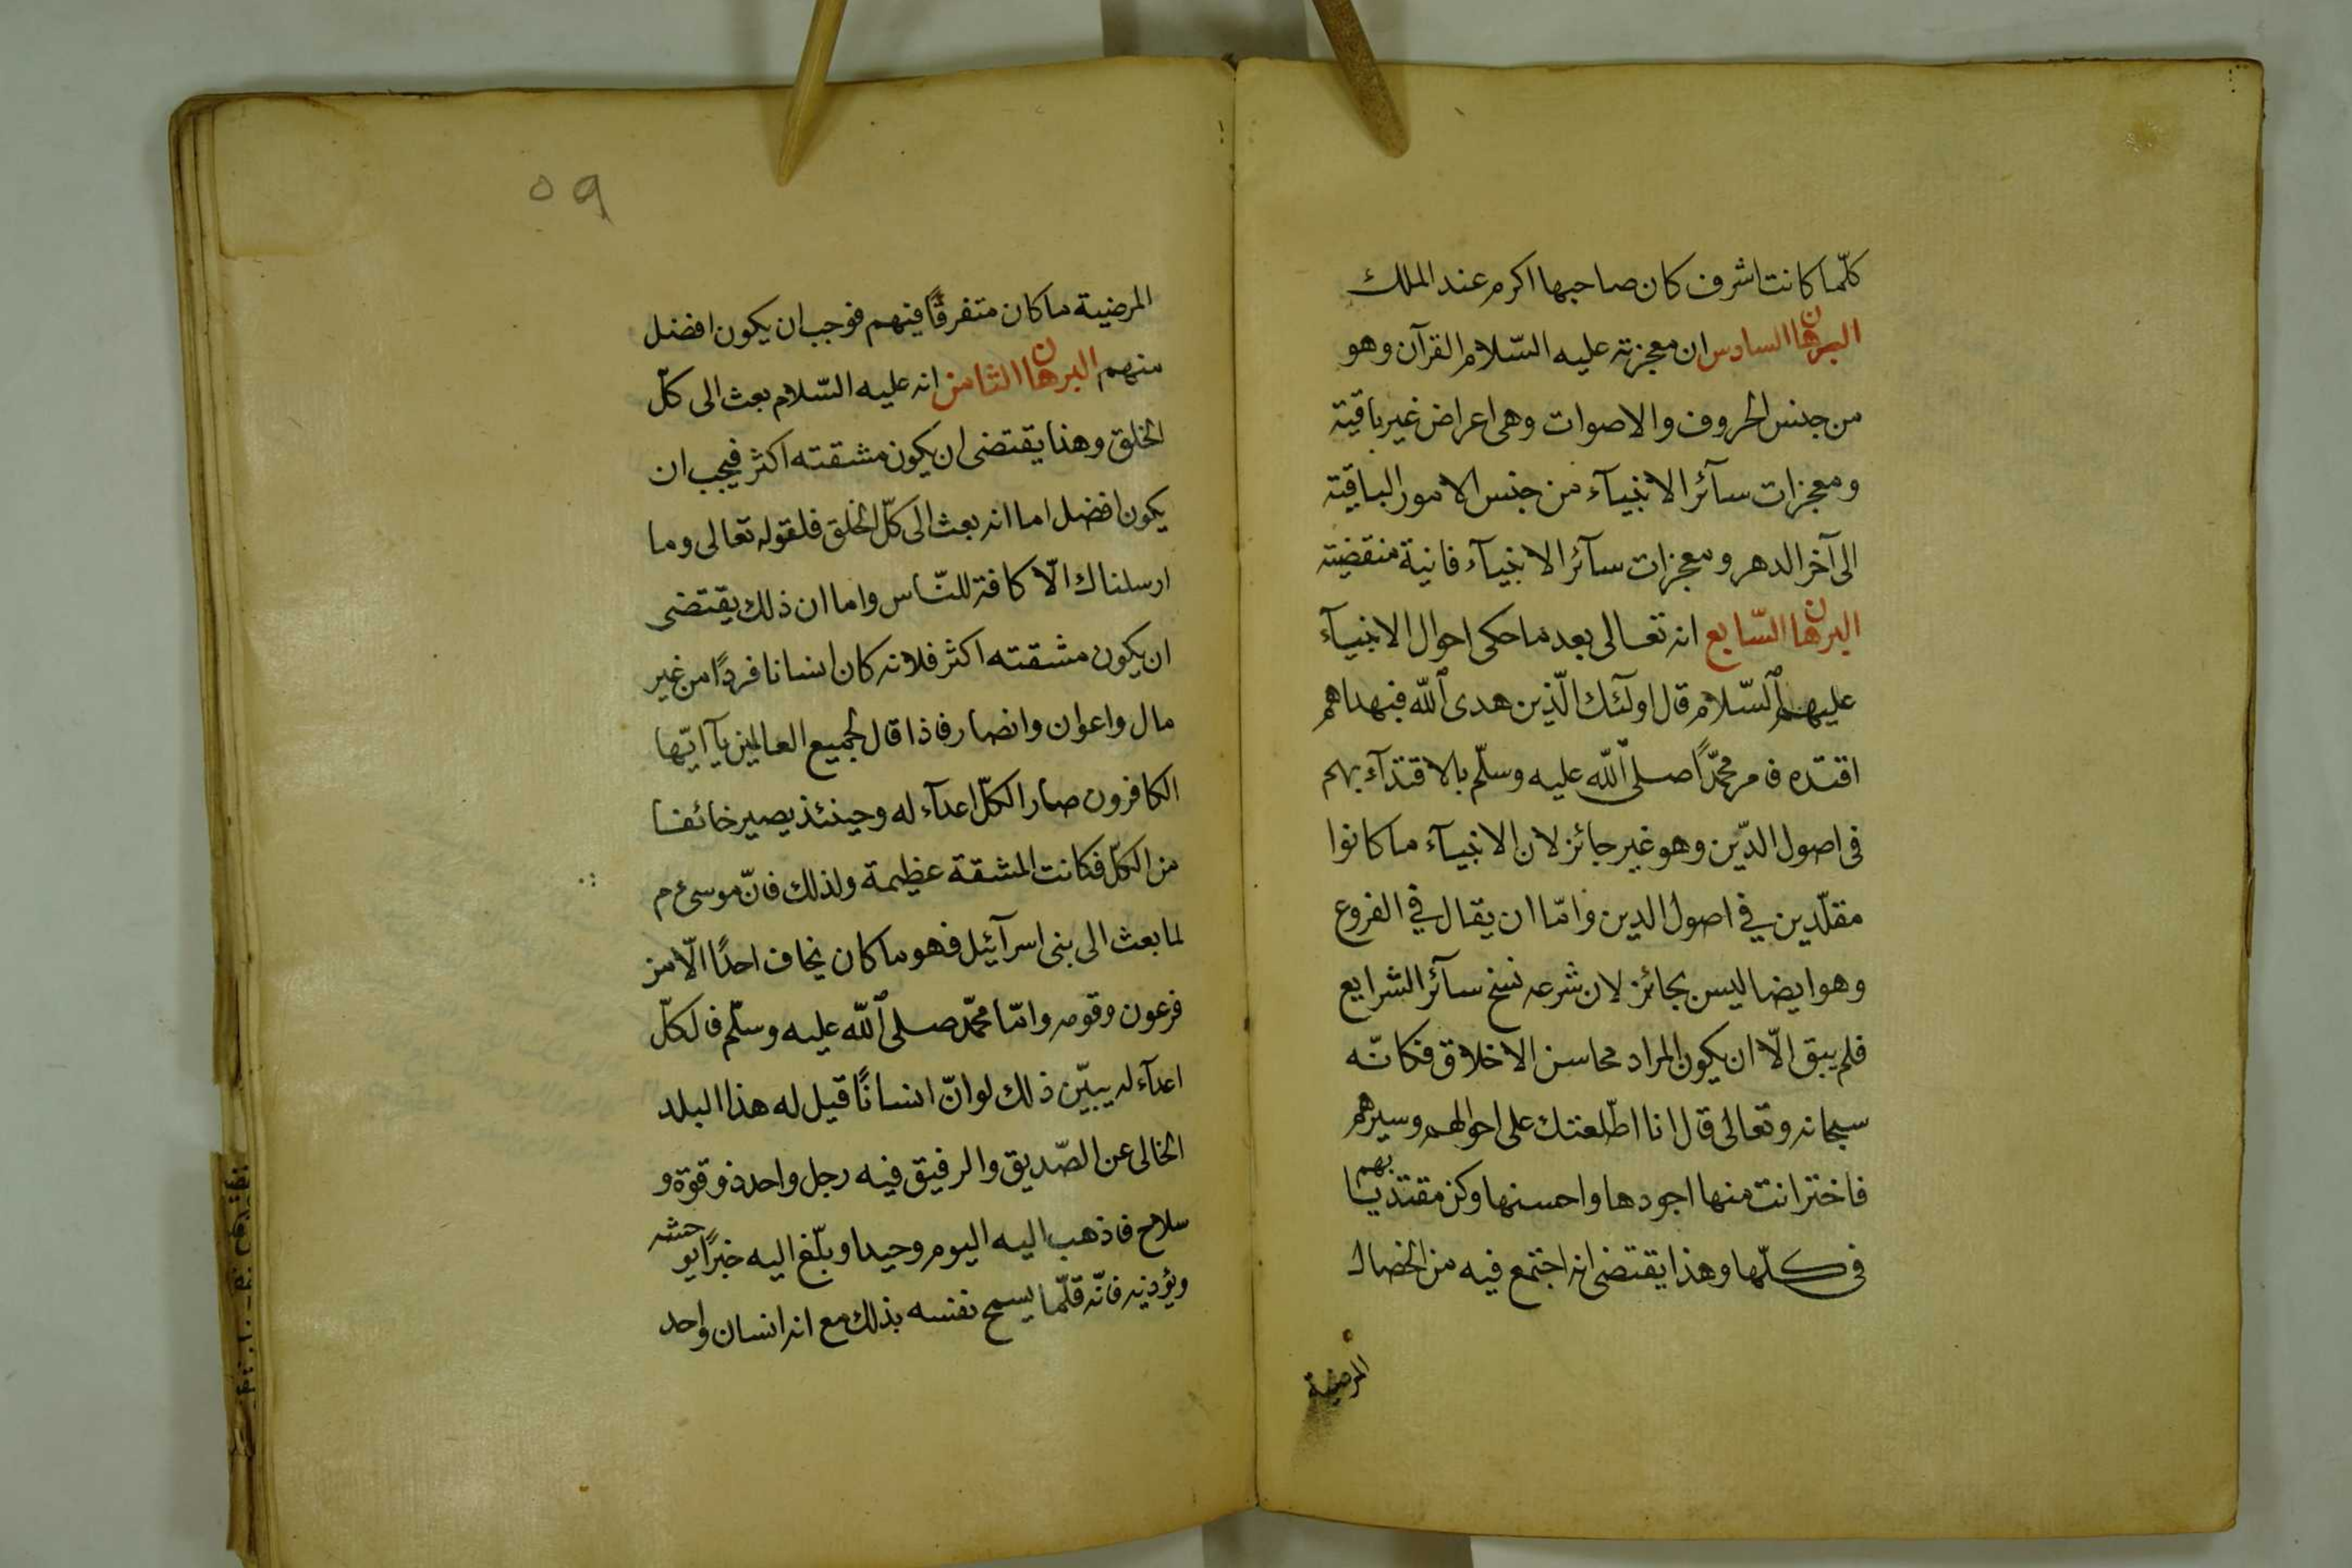 كلّما كانت اشرف كان صاحبها اكرم عند الملك
البرهان السادس ان معجزته عليه السّلام القرآن وهو
من جنس الحروف والاصوات وهى اعراض غير باقية
ومعجزات سآئر الانبيآء من جنس الامور الباقية
الى آخر الدهر ومعجزات سآئر الانبيآء فانية منقضية
البرهان السّابع انه تعالى بعد ما حكى احوال الانبيآء
عليهم السّلام قال اولٓئك الّذين هدى الله فبهداهم
اقتده فامر محمّدًا صلى الله عليه وسلّم بالاقتدآء بهم
فى اصول الدّين وهو غير جائز لان الانبيآء ما كانوا
مقلّدين في اصول الدين وامّا ان يقال في الفروع
وهو ايضا ليس بجائز لان شرعه نسخ سآئر الشرايع
فلم يبق الّا ان يكون المراد محاسن الاخلاق فكانّه
سبحانه وتعالى قال انا اطّلعتك على احوالهم وسيرهم
فاختر انت منها اجودها واحسنها وكن مقتديا بهم
فى كلّها وهذا يقتضى انه اجتمع فيه من الخصال
المرضية
٥٩
المرضية ما كان متفرقًا فيهم فوجب ان يكون افضل
منهم البرهان الثامن انه عليه السّلام بعث الى كلّ
الخلق وهذا يقتضى ان يكون مشقته اكثر فيجب ان
يكون افضل اما انه بعث الى كلّ الخلق فلقوله تعالى وما
ارسلناك الّا كافة للنّاس واما ان ذلك يقتضى
ان يكون مشقته اكثر فلانه كان انسانا فردًا من غير
مال واعوان وانصار فاذا قال لجميع العالمين يآ ايّها
الكافرون صار الكلّ اعدآء له وحينئذ يصير خائفا
من الكلّ فكانت المشقة عظيمة ولذلك فانّ موسى ع م
لما بعث الى بنى اسرآئيل فهو ما كان يخاف احدًا الّا من
فرعون وقومه وامّا محمّد صلى الله عليه وسلّم فالكلّ
اعدآء له يبيّن ذلك لو انّ انسانًا قيل له هذا البلد
الخالى عن الصّديق والرفيق فيه رجل واحد ذو قوّة و
سلاح فاذهب اليه اليوم وحيدا وبلّغ اليه خبرًا يوحشه
ويؤذيه فانّه قلّما يسمح نفسه بذلك مع انه انسان واحد